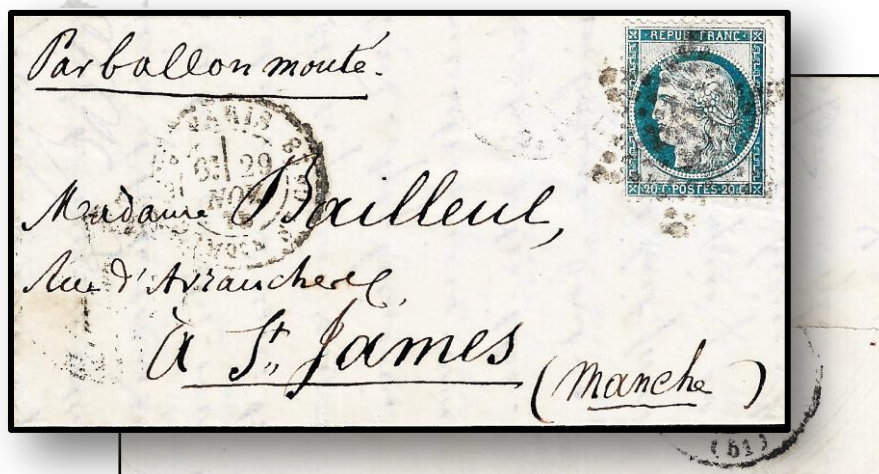 Par ballon monté.
REPUB FRANC
20 C POSTES 20 C
PARIS
29
NOV
Madame Bailleul,
Rue d'Avranches,
à St. James
(Manche)
(51)